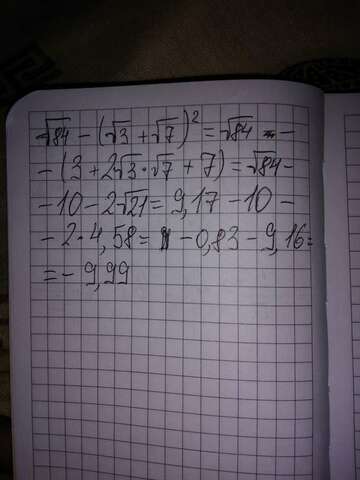 √84 - (√3 + √7)² = √84 -
- (3 + 2√3·√7 + 7) = √84 -
- 10 - 2√21 = 9,17 - 10 -
- 2·4,58 = - 0,83 - 9,16 =
= - 9,99